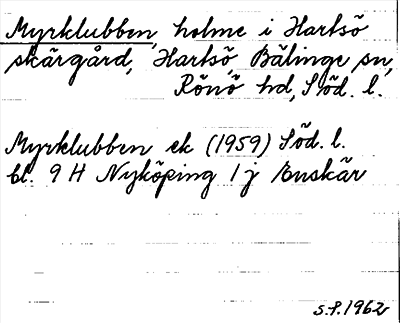 Myrklubben, holme i Hartsö
skärgård, Hartsö, Bälinge sn,
Rönö hd, Söd. l.
Myrklubben ek (1959) Söd. l.
bl. 9 H Nyköping 1 j Enskär
S.P. 1962